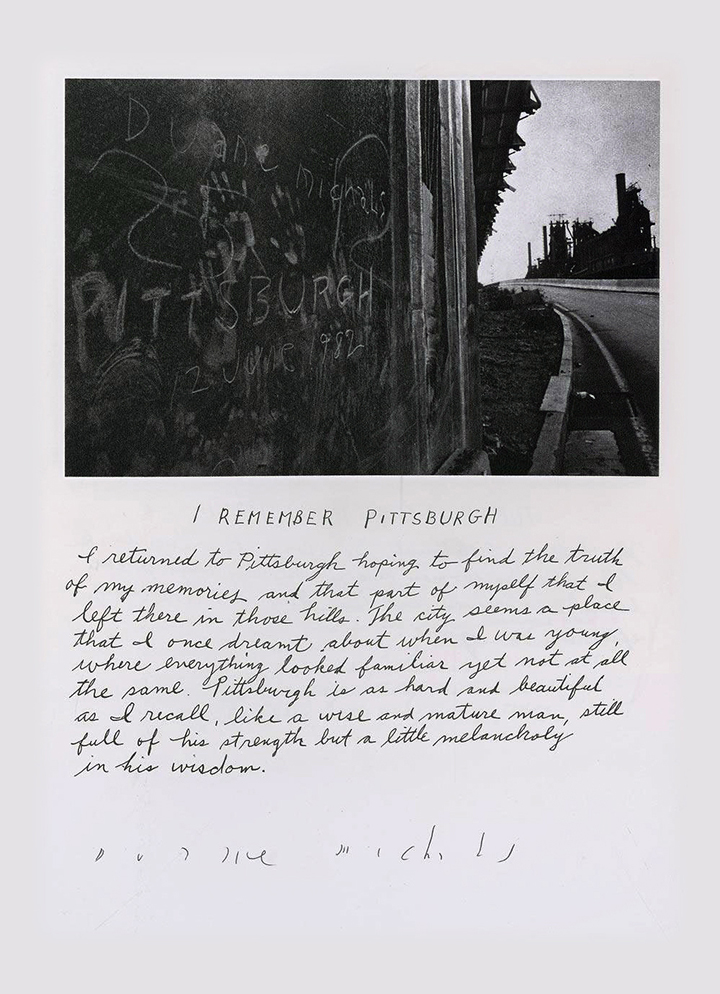 Duane Michals
PITTSBURGH
12 June 1982
I REMEMBER PITTSBURGH
I returned to Pittsburgh hoping to find the truth
of my memories and that part of myself that I
left there in those hills. The city seems a place
that I once dreamt about when I was young,
where everything looked familiar yet not at all
the same. Pittsburgh is as hard and beautiful
as I recall, like a wise and mature man, still
full of his strength but a little melancholy
in his wisdom.
Duane Michals